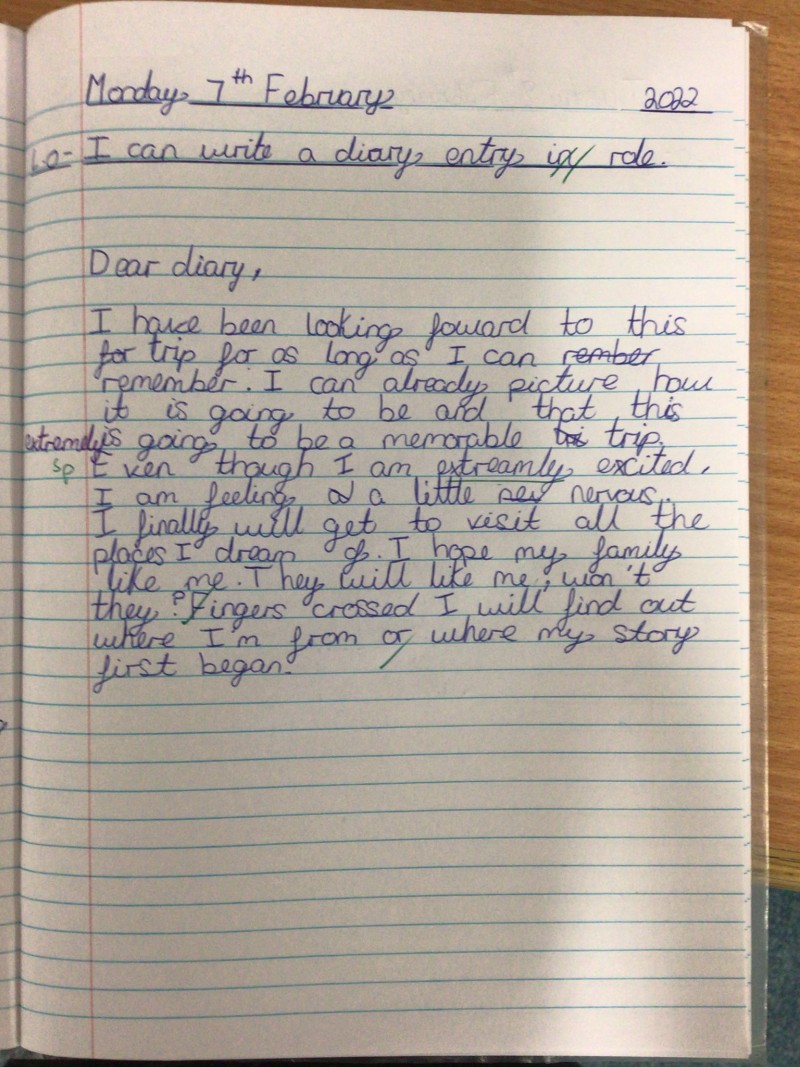 Monday 7th February 2022
LO- I can write a diary entry in role.
Dear diary,
I have been looking foward to this
for trip for as long as I can rember
remember. I can already picture how
it is going to be and that this
extremely is going to be a memorable tri trip.
sp Even though I am extreamly excited,
I am feeling a little nervous.
I finally will get to visit all the
places I dream of. I hope my family
like me. They will like me, won't
they? Fingers crossed I will find out
where I'm from or where my story
first began.